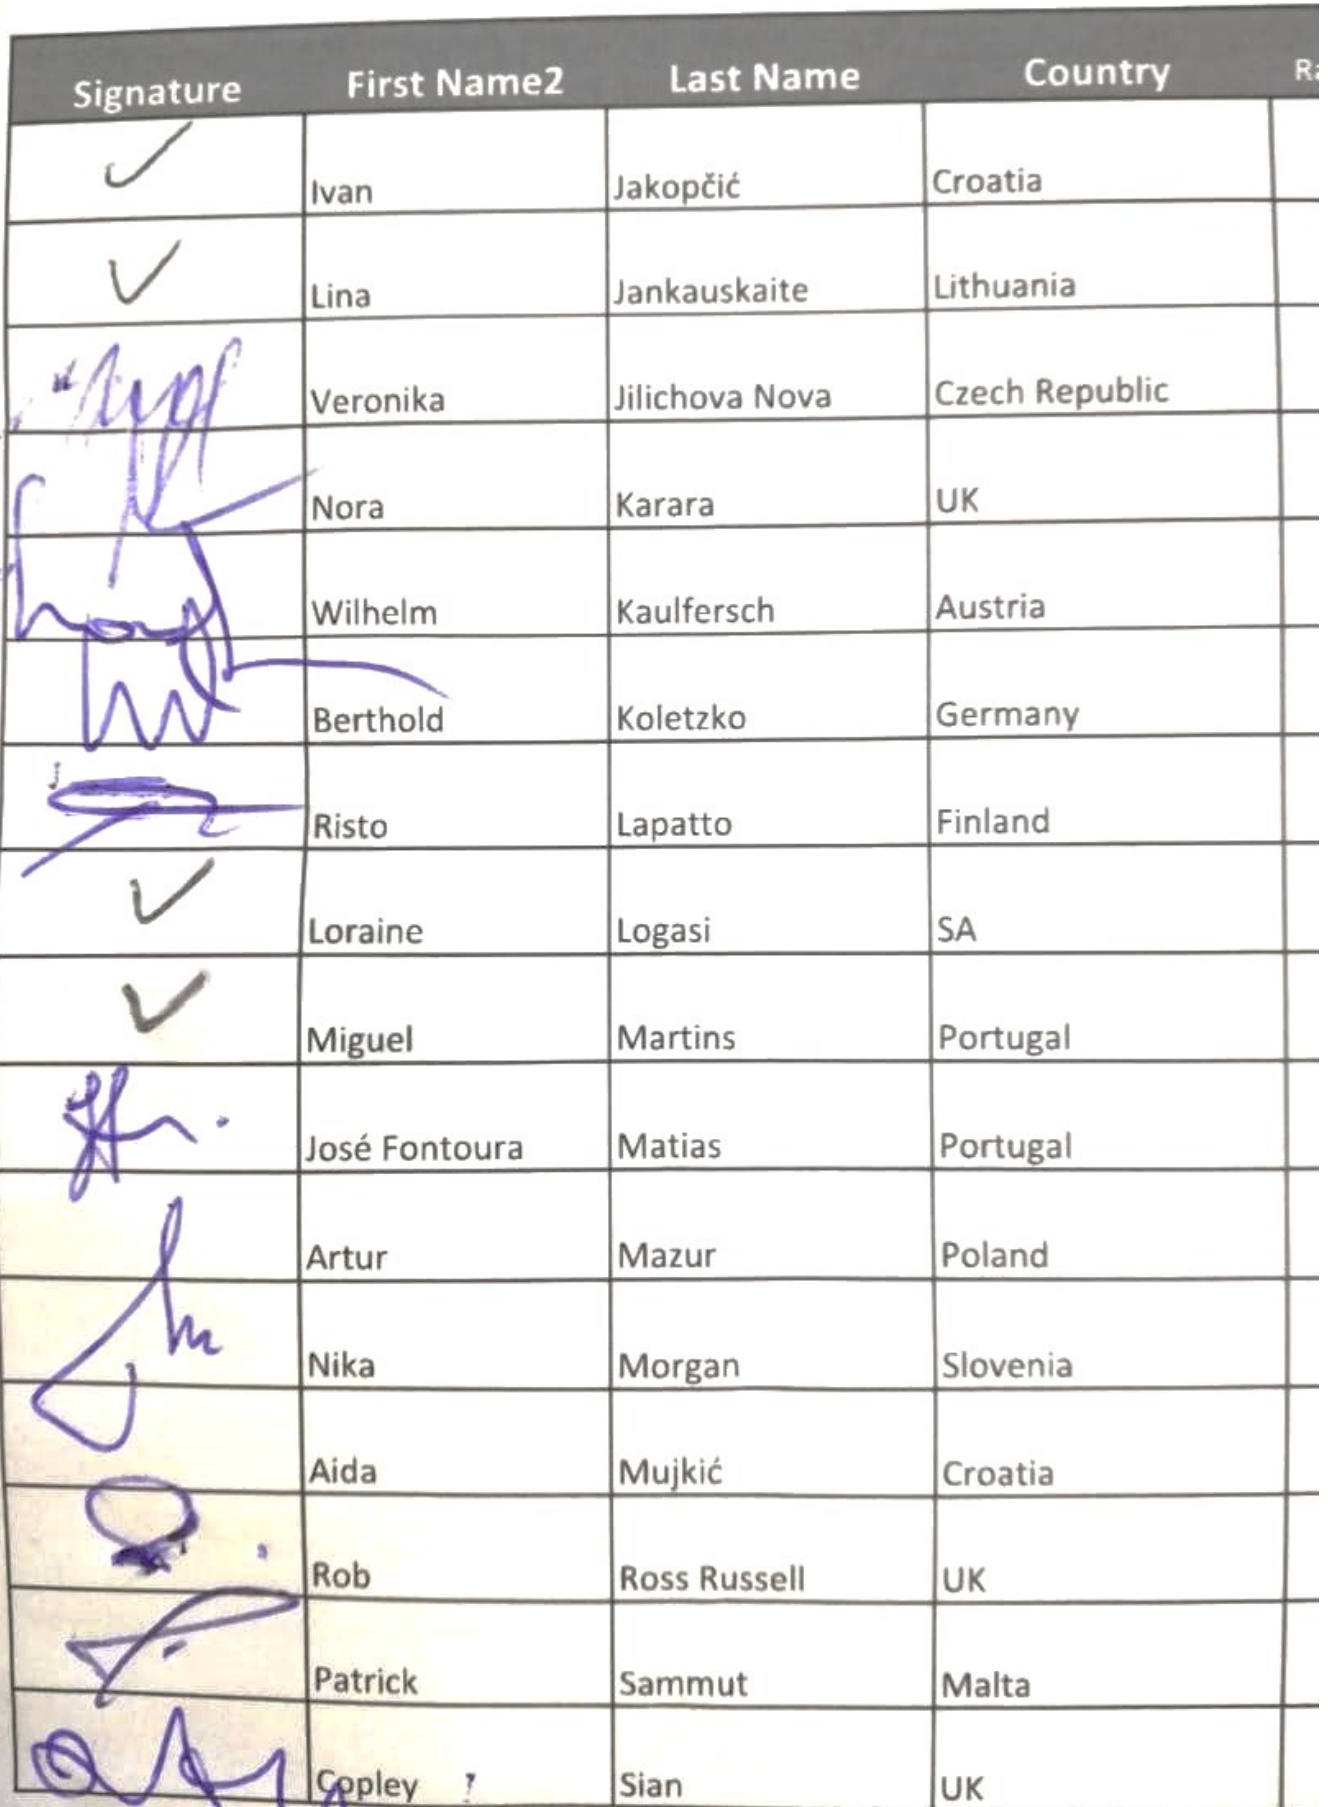 Signature First Name2 Last Name Country
Ivan Jakopčić Croatia
Lina Jankauskaite Lithuania
Veronika Jilichova Nova Czech Republic
Nora Karara UK
Wilhelm Kaulfersch Austria
Berthold Koletzko Germany
Risto Lapatto Finland
Loraine Logasi SA
Miguel Martins Portugal
José Fontoura Matias Portugal
Artur Mazur Poland
Nika Morgan Slovenia
Aida Mujkić Croatia
Rob Ross Russell UK
Patrick Sammut Malta
Copley Sian UK